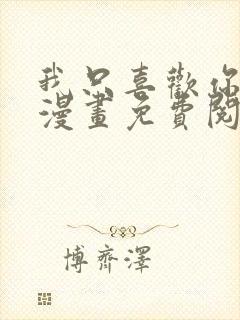 我只喜歡你
漫畫免費閱
博齊澤